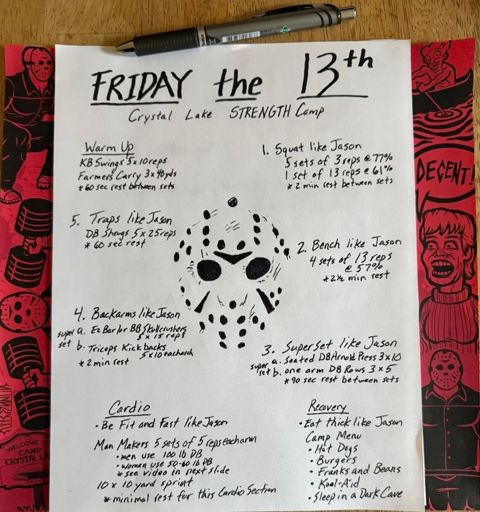 FRIDAY the 13th
Crystal Lake STRENGTH Camp
Warm Up
KB Swings 5x10reps
Farmers Carry 3x40yds
* 60 sec rest between sets
1. Squat like Jason
5 sets of 3 reps @ 77%
1 set of 13 reps @ 61%
* 2 min rest between sets
5. Traps like Jason
DB Shrugs 5x25reps
* 60 sec rest
2. Bench like Jason
4 sets of 13 reps
@ 57%
* 2½ min rest
4. Backarms like Jason
super set
a. Ez Bar/or BB Skullcrushers
5 x 15 reps
b. Triceps Kickbacks
5x10 eacharm
* 2 min rest
3. Superset like Jason
super set
a. Seated DB Arnold Press 3x10
b. one arm DB Rows 3x5
* 90 sec rest between sets
Cardio
• Be Fit and Fast like Jason
Man Makers 5 sets of 5 reps eacharm
• men use 100 lb DB
• women use 50-60 lb DB
* see video in next slide
10 x 10 yard sprint
* minimal rest for this Cardio Section
Recovery
• Eat thick like Jason
Camp Menu
• Hot Dogs
• Burgers
• Franks and Beans
• Kool-Aid
• Sleep in a Dark Cave
DECENT!
WELCOME
CAMP
CRYSTAL